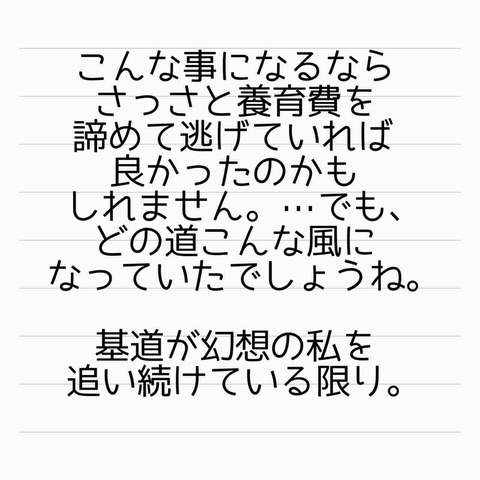 こんな事になるなら
さっさと養育費を
諦めて逃げていれば
良かったのかも
しれません。…でも、
どの道こんな風に
なっていたでしょうね。
基道が幻想の私を
追い続けている限り。